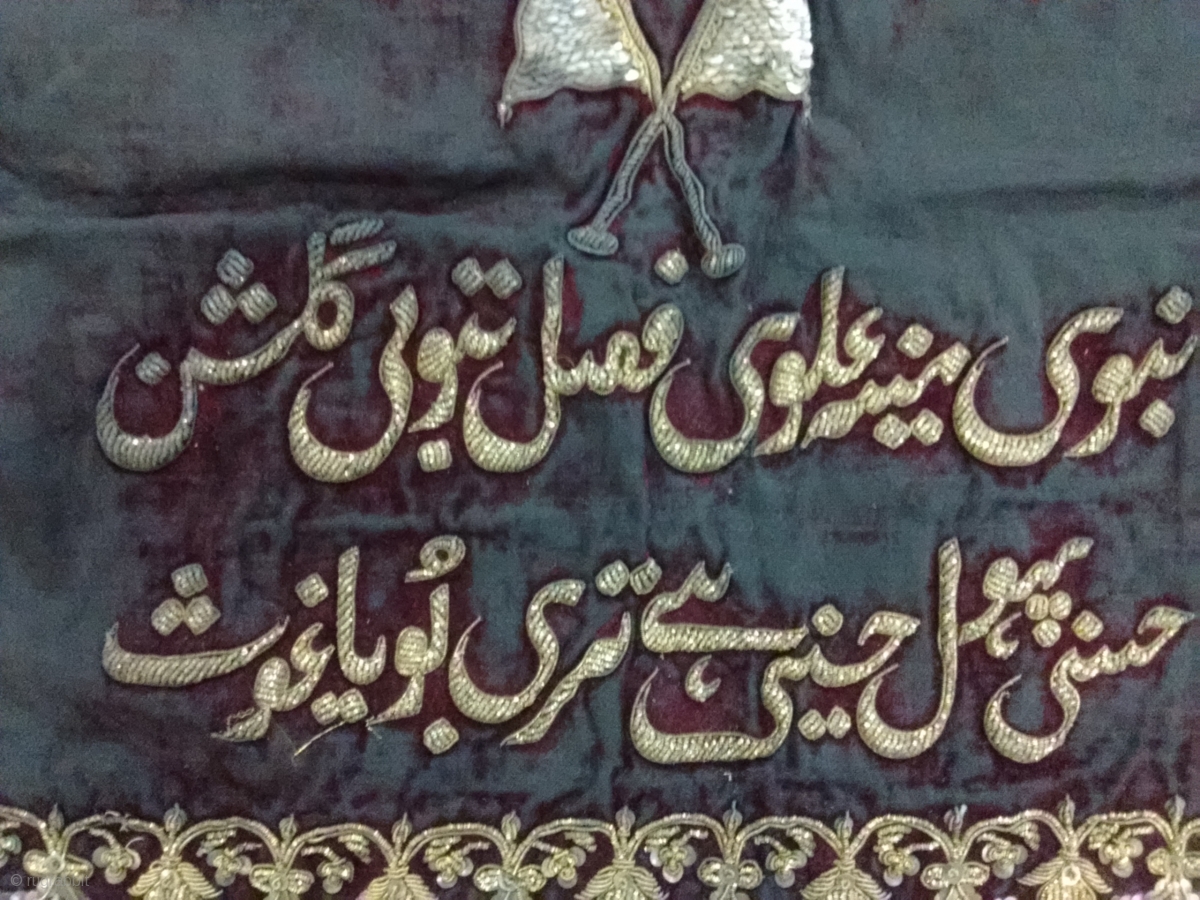 نبوی مینہ علوی فصل بتولی گلشن
حسنی پھول حسینی ہے تری بُو یا غوث
© rugrabbit